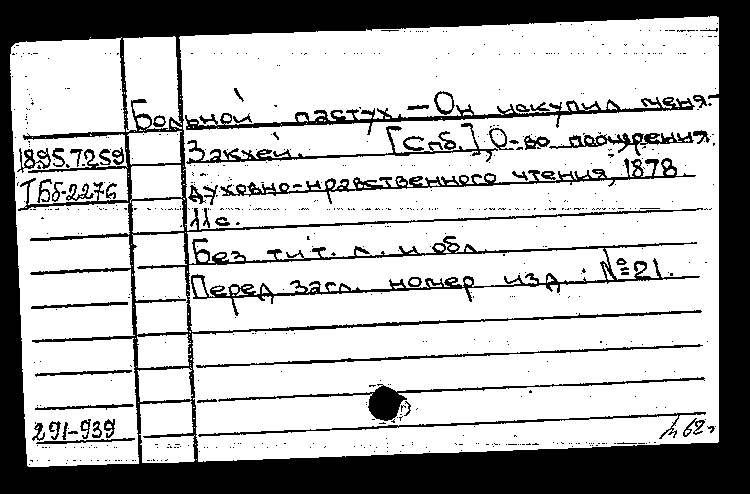 Больной пастух. — Он искупил меня. —
1895.7259 Закхей. [Спб.], О-во поощрения
ТБб-2276 духовно-нравственного чтения, 1878
11 с.
Без тит. л. и обл.
Перед загл. номер изд.: №21.
291-939
м 62 г